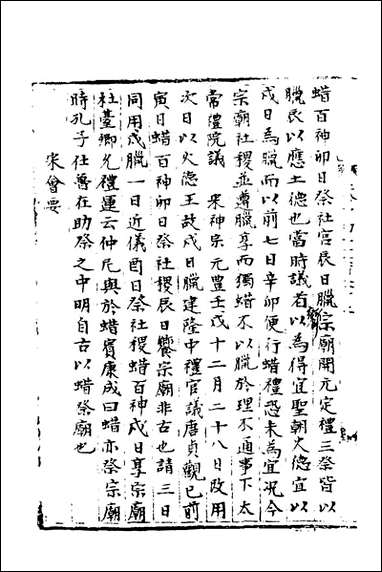 蜡百神卯日祭社宫辰日臘宗廟開元定禮三祭皆以
臘辰以應土德也當時議者以為得宜聖朝火德宜以
戌日為臘而以前七日辛卯便行蜡禮恐未為宜況今
宗廟社稷並遵臘享而獨蜡不以臘於理不通事下太
常禮院議 宋神宗元豐壬戌十二月二十八日改用
次日以火德王故戌日臘建隆中禮官議唐貞觀已前
寅日蜡百神卯日祭社稷辰日饗宗廟非古也請三日
同用戌臘一日近儀酉日祭社稷蜡百神戌日享宗廟
杜臺卿允禮運云仲尼與於蜡賓康成曰蜡亦祭宗廟
時孔子仕魯在助祭之中明自古以蜡祭廟也
宋會要